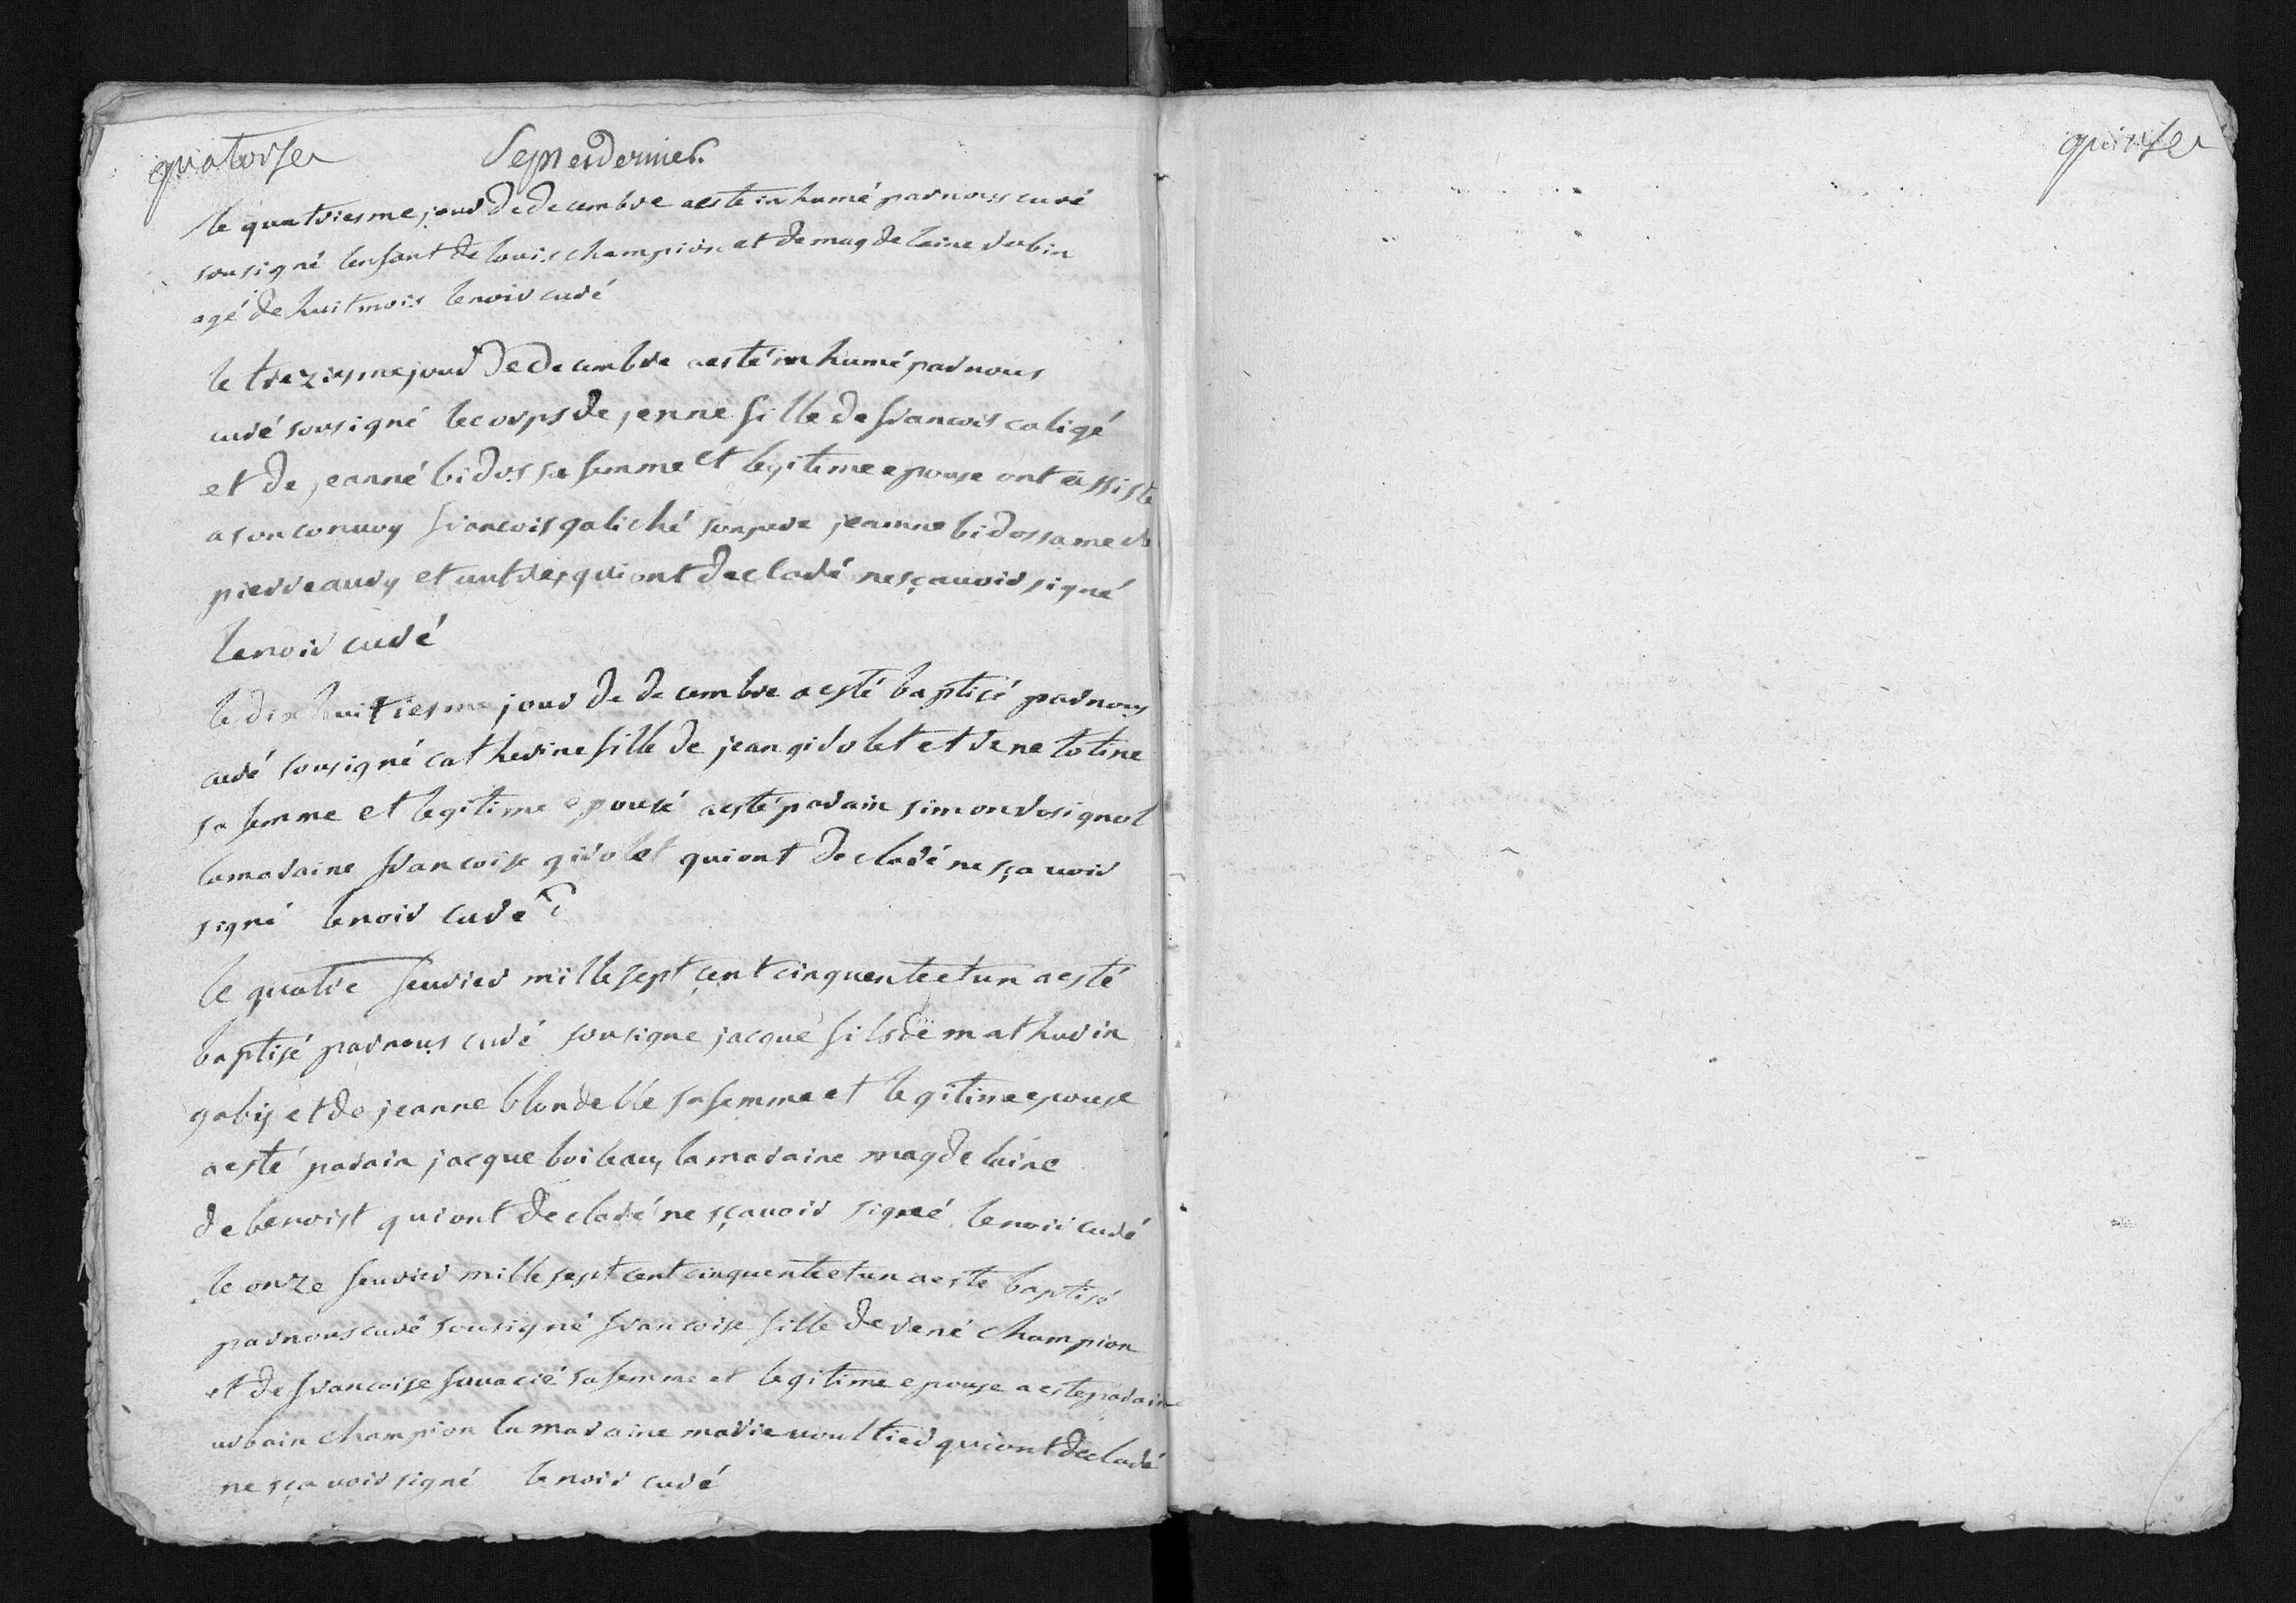 quatorse
Sept et dernier.
quinse
le quatriesme jour de decembre a este inhumé par nous curé
sousigné lenfant de louis champion et de magdelaine robin
agé de huit mois lenoir curé
le treziesme jour de decembre a esté inhumé par nous
curé sousigné le corps de jenne fille de francois caligé
et de jeanné bidos sa femme et legitime epouse ont assiste
a son convoy francois galiché son pere jeanne bidos sa mere
pierre aury et autres qui ont declaré ne sçauoir signé
lenoir curé
le dix huitiesme jour de decembre a esté bapticé par nous
curé sousigné catherine fille de jean girolet et rene totine
sa femme et legitime epousé a esté parain simon rosignol
la maraine francoise girolet qui ont declaré ne sçauoir
signé lenoir curé
le quatre feurier mille sept cent cinquente et un a esté
baptisé par nous curé sousigne jacque fils de mathurin
gabij et de jeanne blondelle sa femme et legitime epouse
a esté parain jacque boileau la maraine magdelaine
de benoist qui ont declaré ne sçauoir signé lenoir curé
le onze feurier mille sept cent cinquente et un a este baptisé
par nous curé sousigné francoise fille de rené champion
et de francoise fouacié sa femme et legitime epouse a este parain
urbain champion la maraine marie uoultier qui ont declaré
ne sçauoir signé lenoir curé